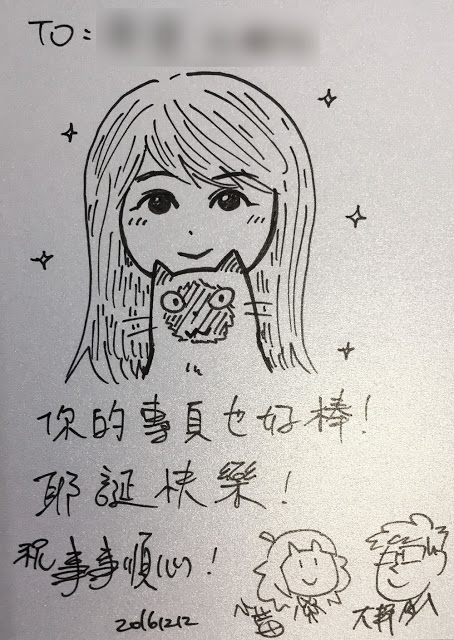 TO:
你的專頁也好棒!
耶誕快樂!
祝事事順心!
20161212